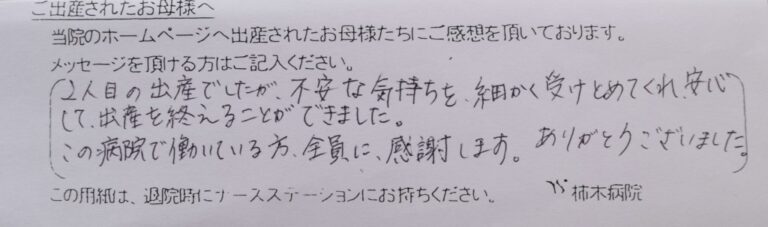 ご出産されたお母様へ
当院のホームページへ出産されたお母様たちにご感想を頂いております。
メッセージを頂ける方はご記入ください。
2人目の出産でしたが、不安な気持ちを、細かく受けとめてくれ、安心
して、出産を終えることができました。
この病院で働いている方、全員に、感謝します。ありがとうございました。
この用紙は、退院時にナースステーションにお持ちください。 柿木病院